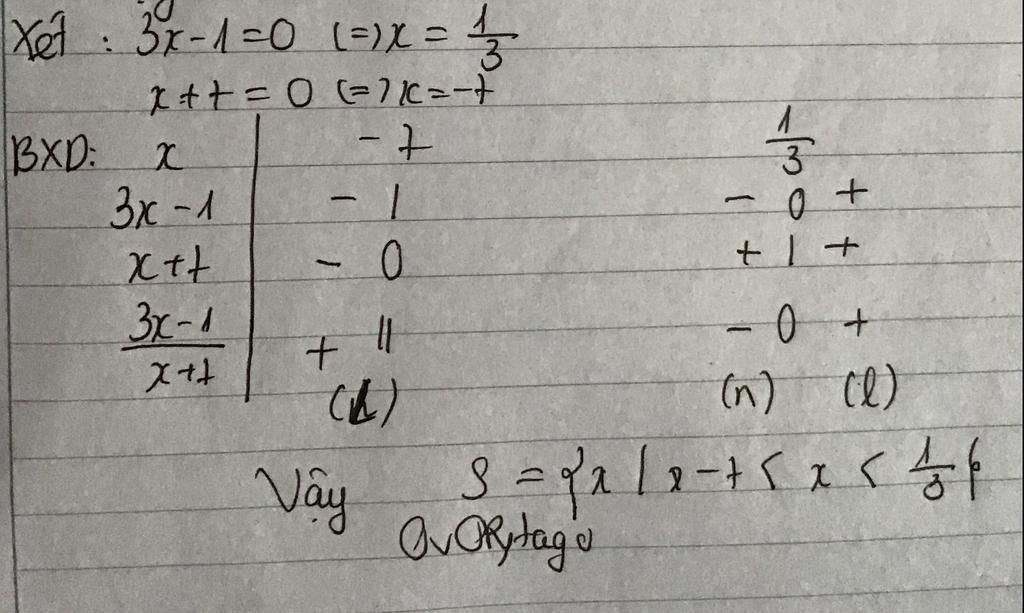 Xét : 3x-1=0 (=) x = 1/3
x+7 = 0 (=) x=-7
BXD: x -7 1/3
3x-1 - | - 0 +
x+7 - 0 + | +
3x-1/x+7 + || - 0 +
(l) (n) (l)
Vậy S = {x | x -7 < x < 1/3 }